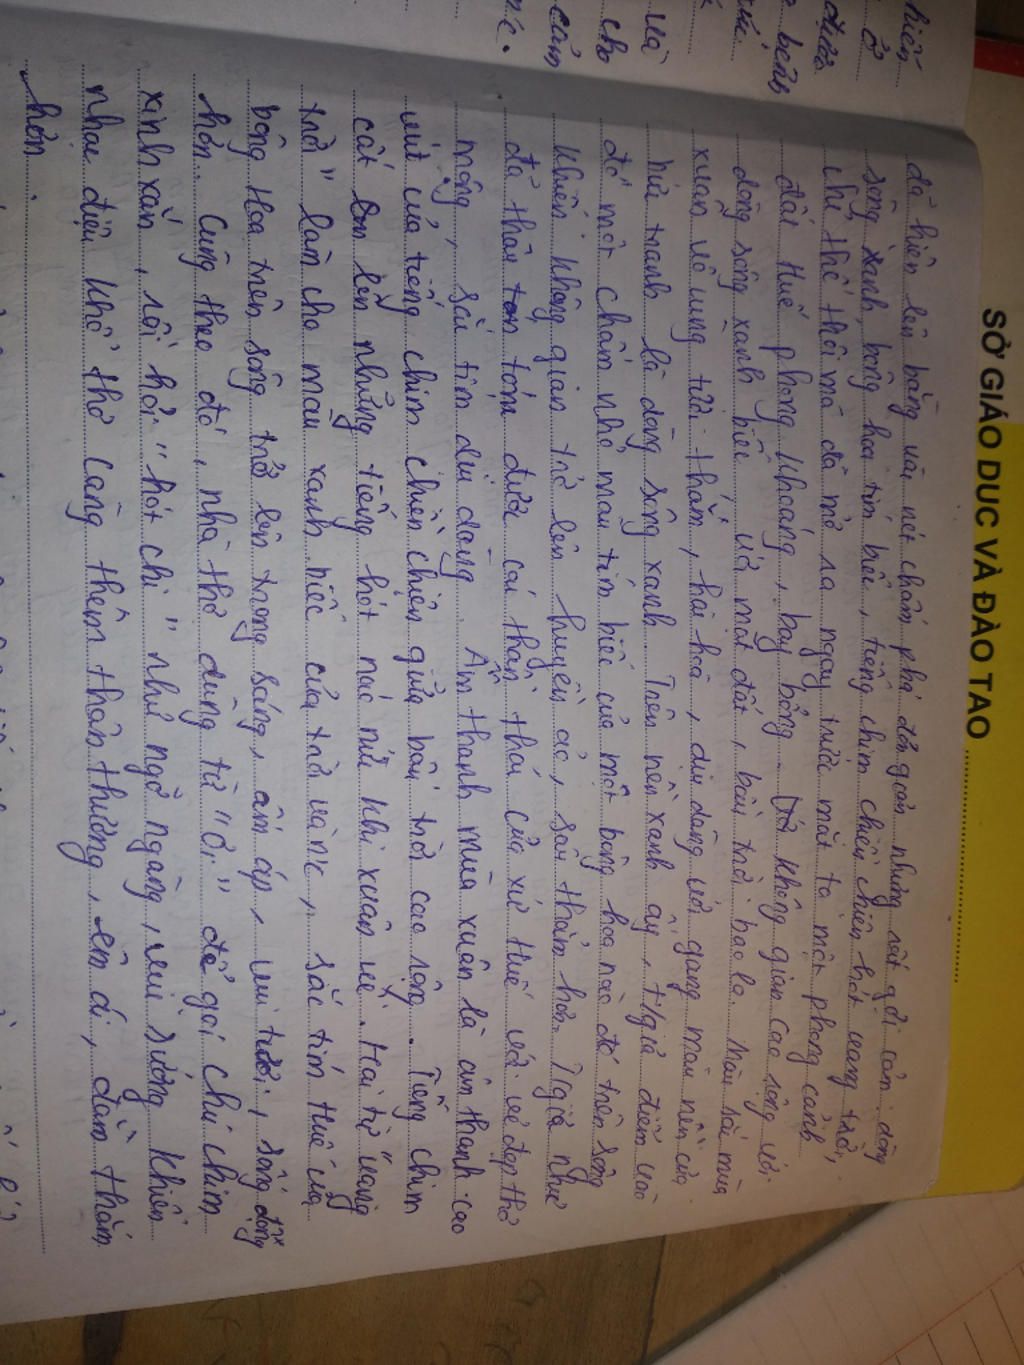 SỞ GIÁO DỤC VÀ ĐÀO TẠO
đã hiện lên bằng vài nét chấm phá đơn giản nhưng rất gợi cảm: dòng
sông xanh, bông hoa tím biếc, tiếng chim chiền chiện hót vang trời,
chỉ thế thôi mà đã mở ra ngay trước mắt ta một phong cảnh
đất Huế phóng khoáng, bay bổng. Với không gian cao rộng với
dòng sông xanh biếc với mặt đất, bầu trời bao la. Màu sắc mùa
xuân vô cùng tươi thắm, hài hoà, dịu dàng với gang màu nền của
bức tranh là dòng sông xanh. Trên nền xanh ấy, t/giả điểm vào
đó một chấm nhỏ màu tím biếc của một bông hoa nào đó trên sông
khiến không gian trở lên huyền ảo, sâu thẳm hơn. T/giả như
đã thâu tóm được cái thần thái của xứ Huế với vẻ đẹp thơ
mộng, sắc tím dịu dàng. Âm thanh mùa xuân là âm thanh cao
vút của tiếng chim chiền chiện giữa bầu trời cao rộng. Tiếng chim
cất lên những tiếng hót náo nức khi xuân về. Hai từ "vang
trời" làm cho màu xanh biếc của trời và nc, sắc tím Huế của
bông hoa trên sông trở lên trong sáng, ấm áp, vui tươi, sống động
hơn. Cũng theo đó, nhà thơ dùng từ "ơi" để gọi chú chim
xinh xắn, rồi hỏi "hót chi" như ngỡ ngàng, vui sướng khiến
nhạc điệu khổ thơ càng thêm thân thương, êm ái, đằm thắm
hơn.
hiến
ở
được
bông
và
cho
cảm